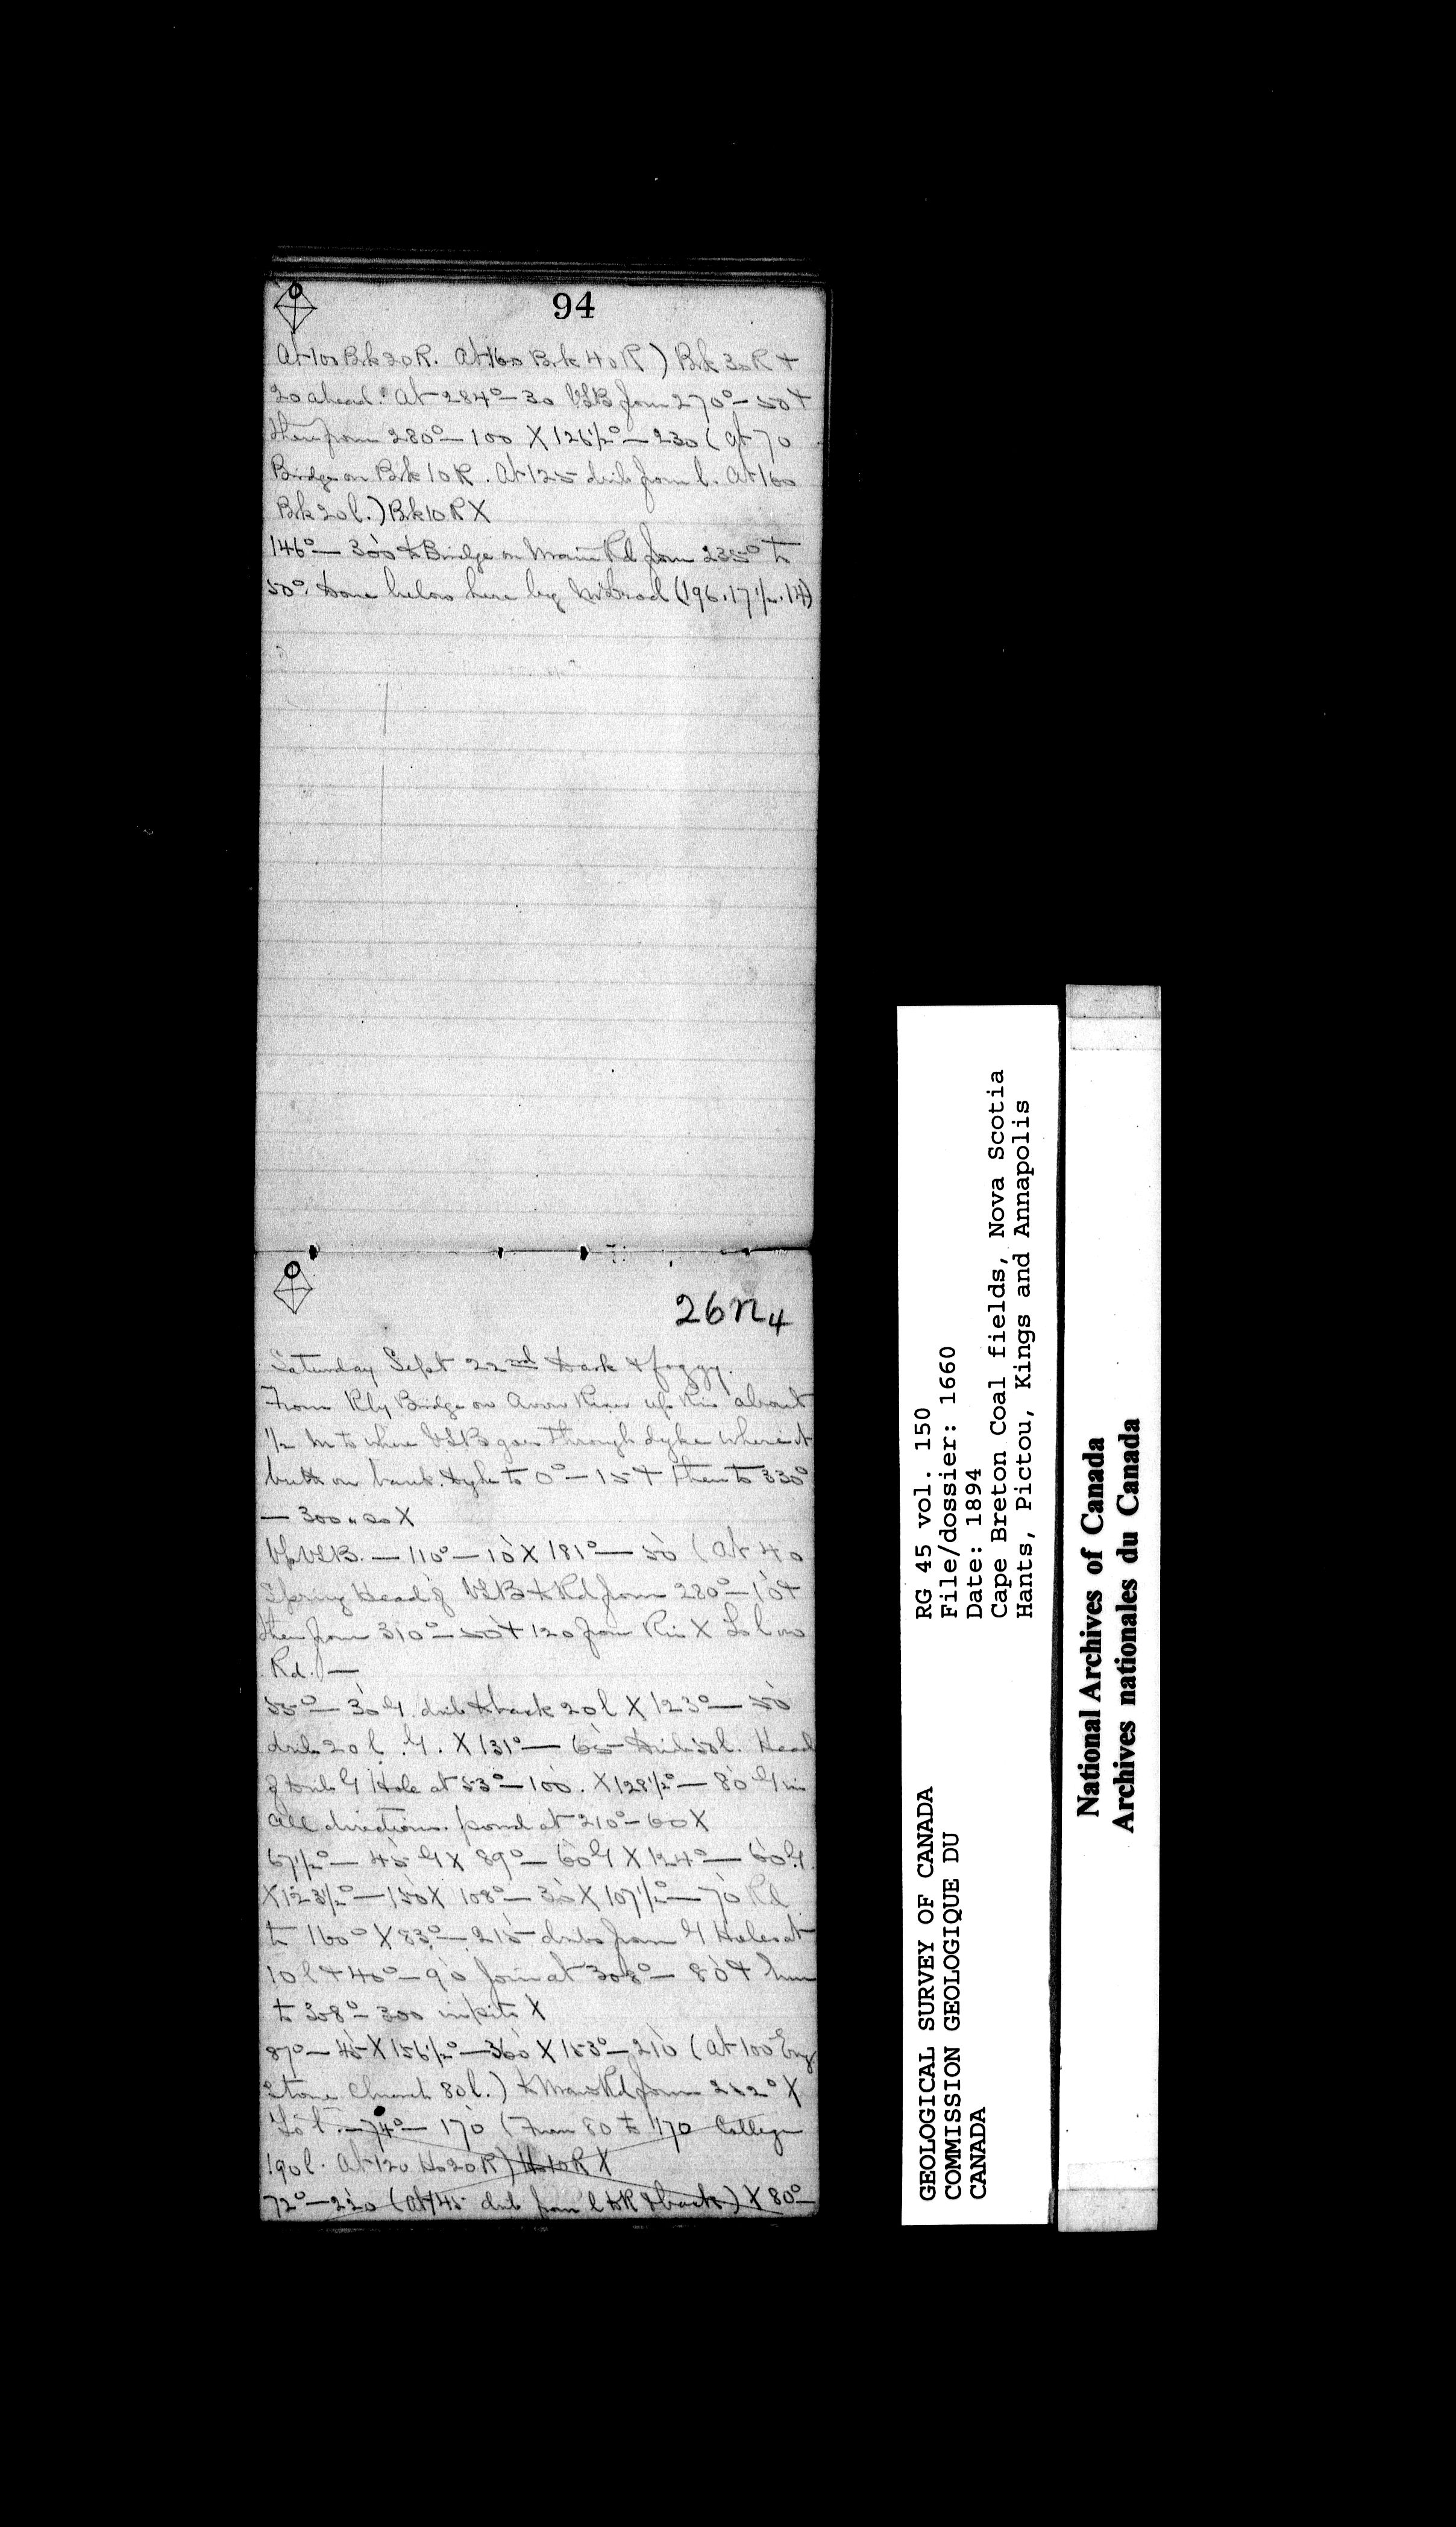 94
At 100 Brk 20 R. At 160 Brk 40 R) Brk 30 R +
20 ahead. At 284° — 30 VSB from 270° — 50 +
then from 280° — 100 X 126 1/2° — 230 (at 70
Bridge on Brk 10 R. At 125 drib from l. At 160
Brk 20 l.) Brk 10 R X
146° — 300 to Bridge on Main Rd from 235° to
50°. Done below here by (196.17 1/2.14)
26 n4
Saturday Sept 22nd Dark & foggy.
From Rly Bridge on Avon River up Riv about
1/2 m to where VSB goes through dyke where it
butts on bank. Dyke to 0° — 15 + then to 330°
— 300 X
Up VSB. — 110° — 10 X 181° — 50 (At 40
Spring Head of VSB to Rd from 280° — 10 +
then from 310° — 50 + 120 from Riv X To l on
Rd. —
55° — 30 G. drib & back 20 l X 123° — 50
drib 20 l. G. X 131° — 65 Drib 50 l. Head
of Drib G Hole at 53° — 100. X 128 1/2° — 80 G in
all directions. pond at 210° — 60 X
67 1/2° — 45 G X 89° — 60 G X 124° — 60 G.
X 123 1/2° — 150 X 108° — 30 X 107 1/2° — 70 Rd
to 160° X 83° — 215 dribs from G Holes at
10 l + 40° — 90 join at 308° — 80 + run
to 308° — 300 in pits X
87° — 45 X 156 1/2° — 360 X 153° — 210 (At 100 Eng
Stone Church 80 l.) to Main Rd from 252° X
To l. — 74° — 170 (From 80 to 170 College
190 l. At 120 Ho 20 R) Ho 10 R X
72° — 220 (At 145 drib from l to R & back) X 80° —
RG 45 vol. 150
File/dossier: 1660
Date: 1894
Cape Breton Coal fields, Nova Scotia
Hants, Pictou, Kings and Annapolis
GEOLOGICAL SURVEY OF CANADA
COMMISSION GEOLOGIQUE DU
CANADA
National Archives of Canada
Archives nationales du Canada